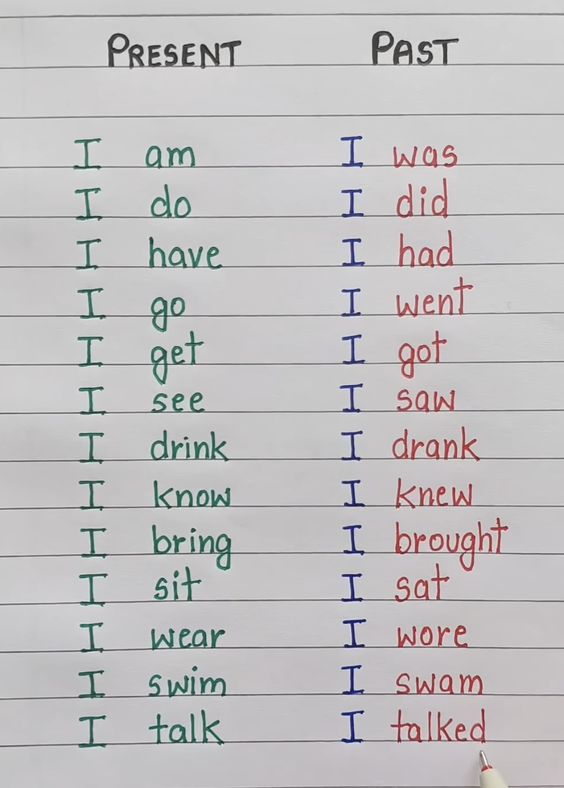 PRESENT PAST
I am I was
I do I did
I have I had
I go I went
I get I got
I see I saw
I drink I drank
I know I knew
I bring I brought
I sit I sat
I wear I wore
I swim I swam
I talk I talked